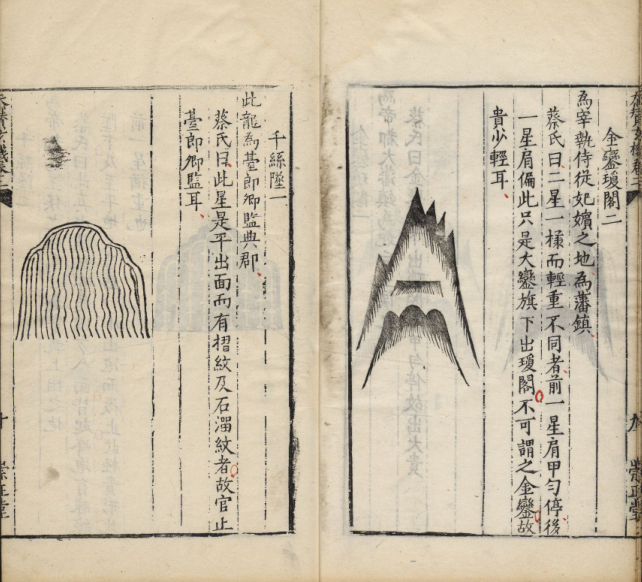 金鑾瓊閣二
為宰執侍從妃嬪之地為藩鎮
蔡氏曰二星一㨾而輕重不同者前一星肩甲勻停後
一星肩偏此只是大鑾旗下出瓊閣不可謂之金鑾故
貴少輕耳
千絲墜一
此龍為䑓郎卿監典郡
蔡氏曰此星是平出面而有摺紋及石溜紋者故官止
䑓郎卿監耳
崇正堂